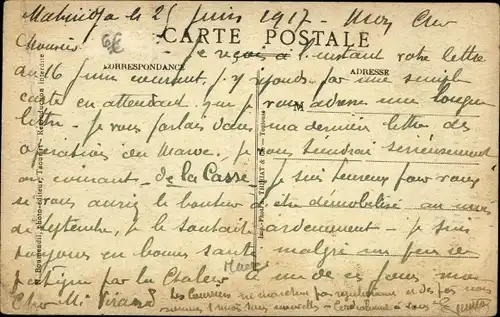 le 25 Juin 1917 - Mon Cher
Maurice
CARTE POSTALE
Je reçois à l'instant votre lettre
CORRESPONDANCE
ADRESSE
du 16 Juin courant, j'y réponds par une simple
carte en attendant que je vous adresse une longue
M
lettre. Je vous parlais dans ma dernière lettre des
opérations du Maroc. Je vous tiendrai sérieusement
au courant - de la Casse. Je suis heureux pour vous
si vous auriez le bonheur d'être démobilisé au mois
de Septembre, je le souhaite ardemment - je suis
toujours en bonne santé malgré un peu de
fatigue par la Chaleur
un de ces jours mon
Cher Mr
Maroc
Les Courriers ne marchent pas régulièrement et des fois nous
sommes 1 mois sans nouvelles - Cordialement à vous
Boumendil, photo-éditeur, Taourirt - Reproduction interdite
Imp.-Phot. THIRIAT & Cie - Toulouse
6€